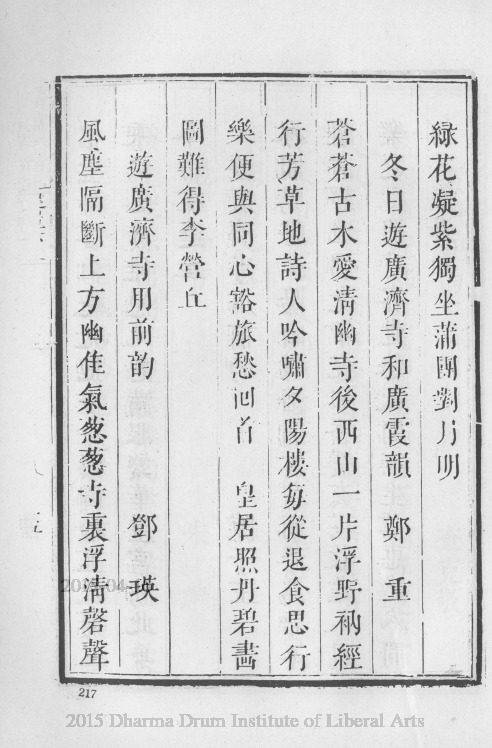 綠花凝紫獨坐蒲團對月明
冬日遊廣濟寺和廣霞韻 鄭重
蒼蒼古木愛清幽寺後西山一片浮野衲經
行芳草地詩人吟嘯夕陽樓每從退食思行
樂便與同心豁旅愁回首 皇居照丹碧畫
圖難得李營丘
遊廣濟寺用前韵 鄧瑛
風塵隔斷上方幽佳氣葱葱寺裏浮清磬聲
217
2015 Dharma Drum Institute of Liberal Arts